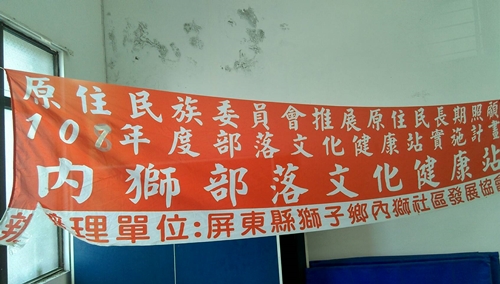 原住民族委員會推展原住民長期照顧
107年度部落文化健康站實施計畫
內獅部落文化健康站
辦理單位:屏東縣獅子鄉內獅社區發展協會